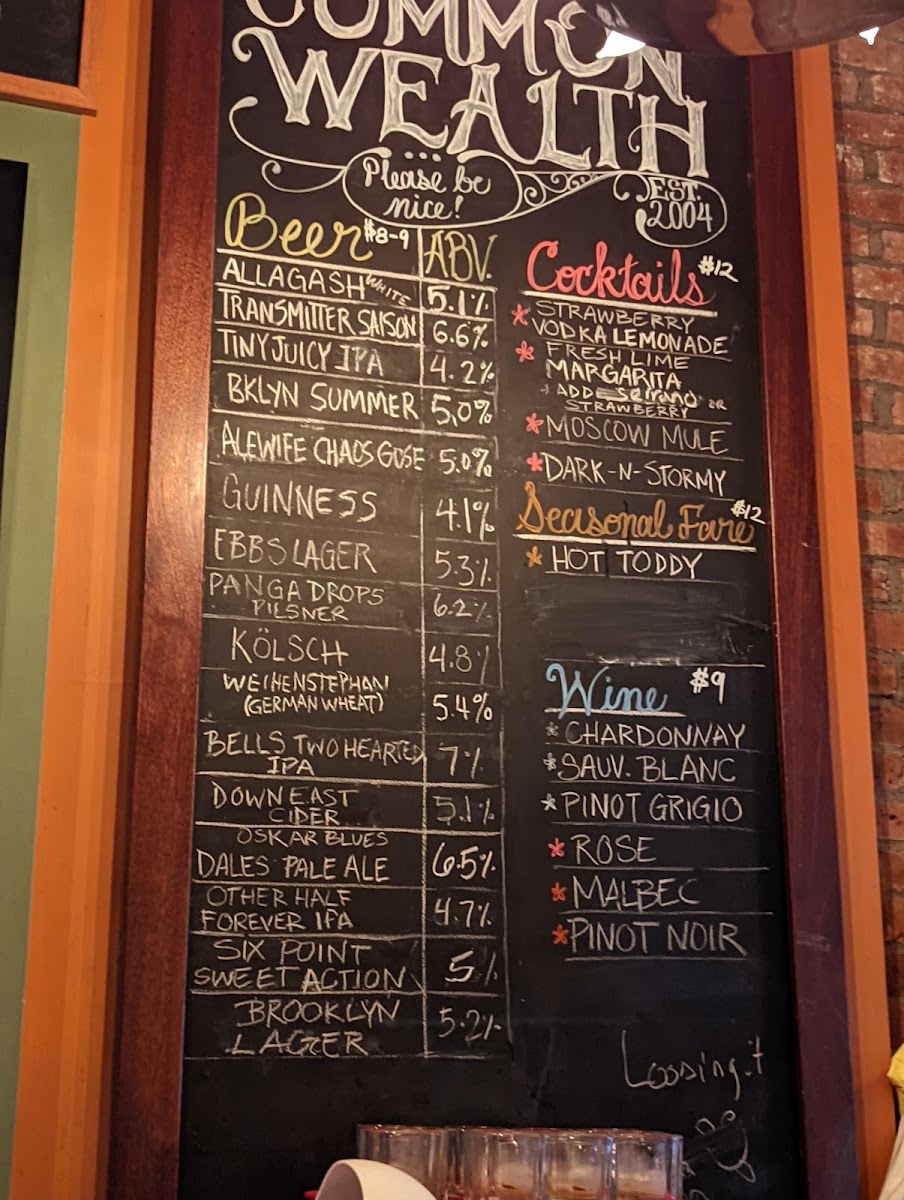 COMMON
WEALTH
Please be
nice!
EST.
2004
Beer $8-9 ABV.
ALLAGASH WHITE 5.1%
TRANSMITTER SAISON 6.6%
TINY JUICY IPA 4.2%
BKLYN SUMMER 5.0%
ALEWIFE CHAOS GOSE 5.0%
GUINNESS 4.1%
EBBS LAGER 5.3%
PANGA DROPS
PILSNER 6.2%
KÖLSCH 4.8%
WEIHENSTEPHAN
(GERMAN WHEAT) 5.4%
BELLS TWO HEARTED
IPA 7%
DOWNEAST
CIDER 5.1%
OSKAR BLUES
DALES PALE ALE 6.5%
OTHER HALF
FOREVER IPA 4.7%
SIX POINT
SWEET ACTION 5%
BROOKLYN
LAGER 5.2%
Cocktails $12
* STRAWBERRY
VODKA LEMONADE
* FRESH LIME
MARGARITA
+ ADD serrano OR
STRAWBERRY
* MOSCOW MULE
* DARK-N-STORMY
Seasonal Fare $12
* HOT TODDY
Wine $9
* CHARDONNAY
* SAUV. BLANC
* PINOT GRIGIO
* ROSE
* MALBEC
* PINOT NOIR